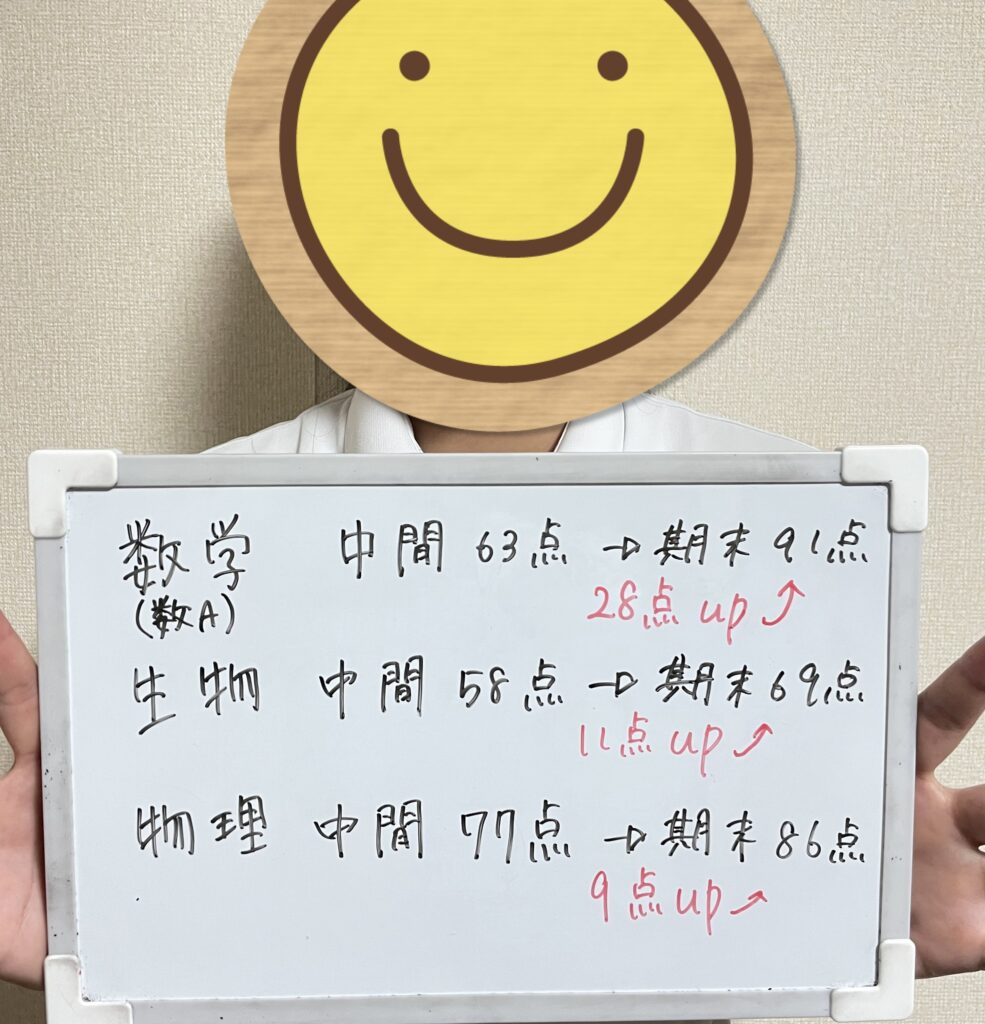 数学 中間 63点 → 期末 91点
(数A) 28点 up ↗
生物 中間 58点 → 期末 69点
11点 up ↗
物理 中間 77点 → 期末 86点
9点 up ↗